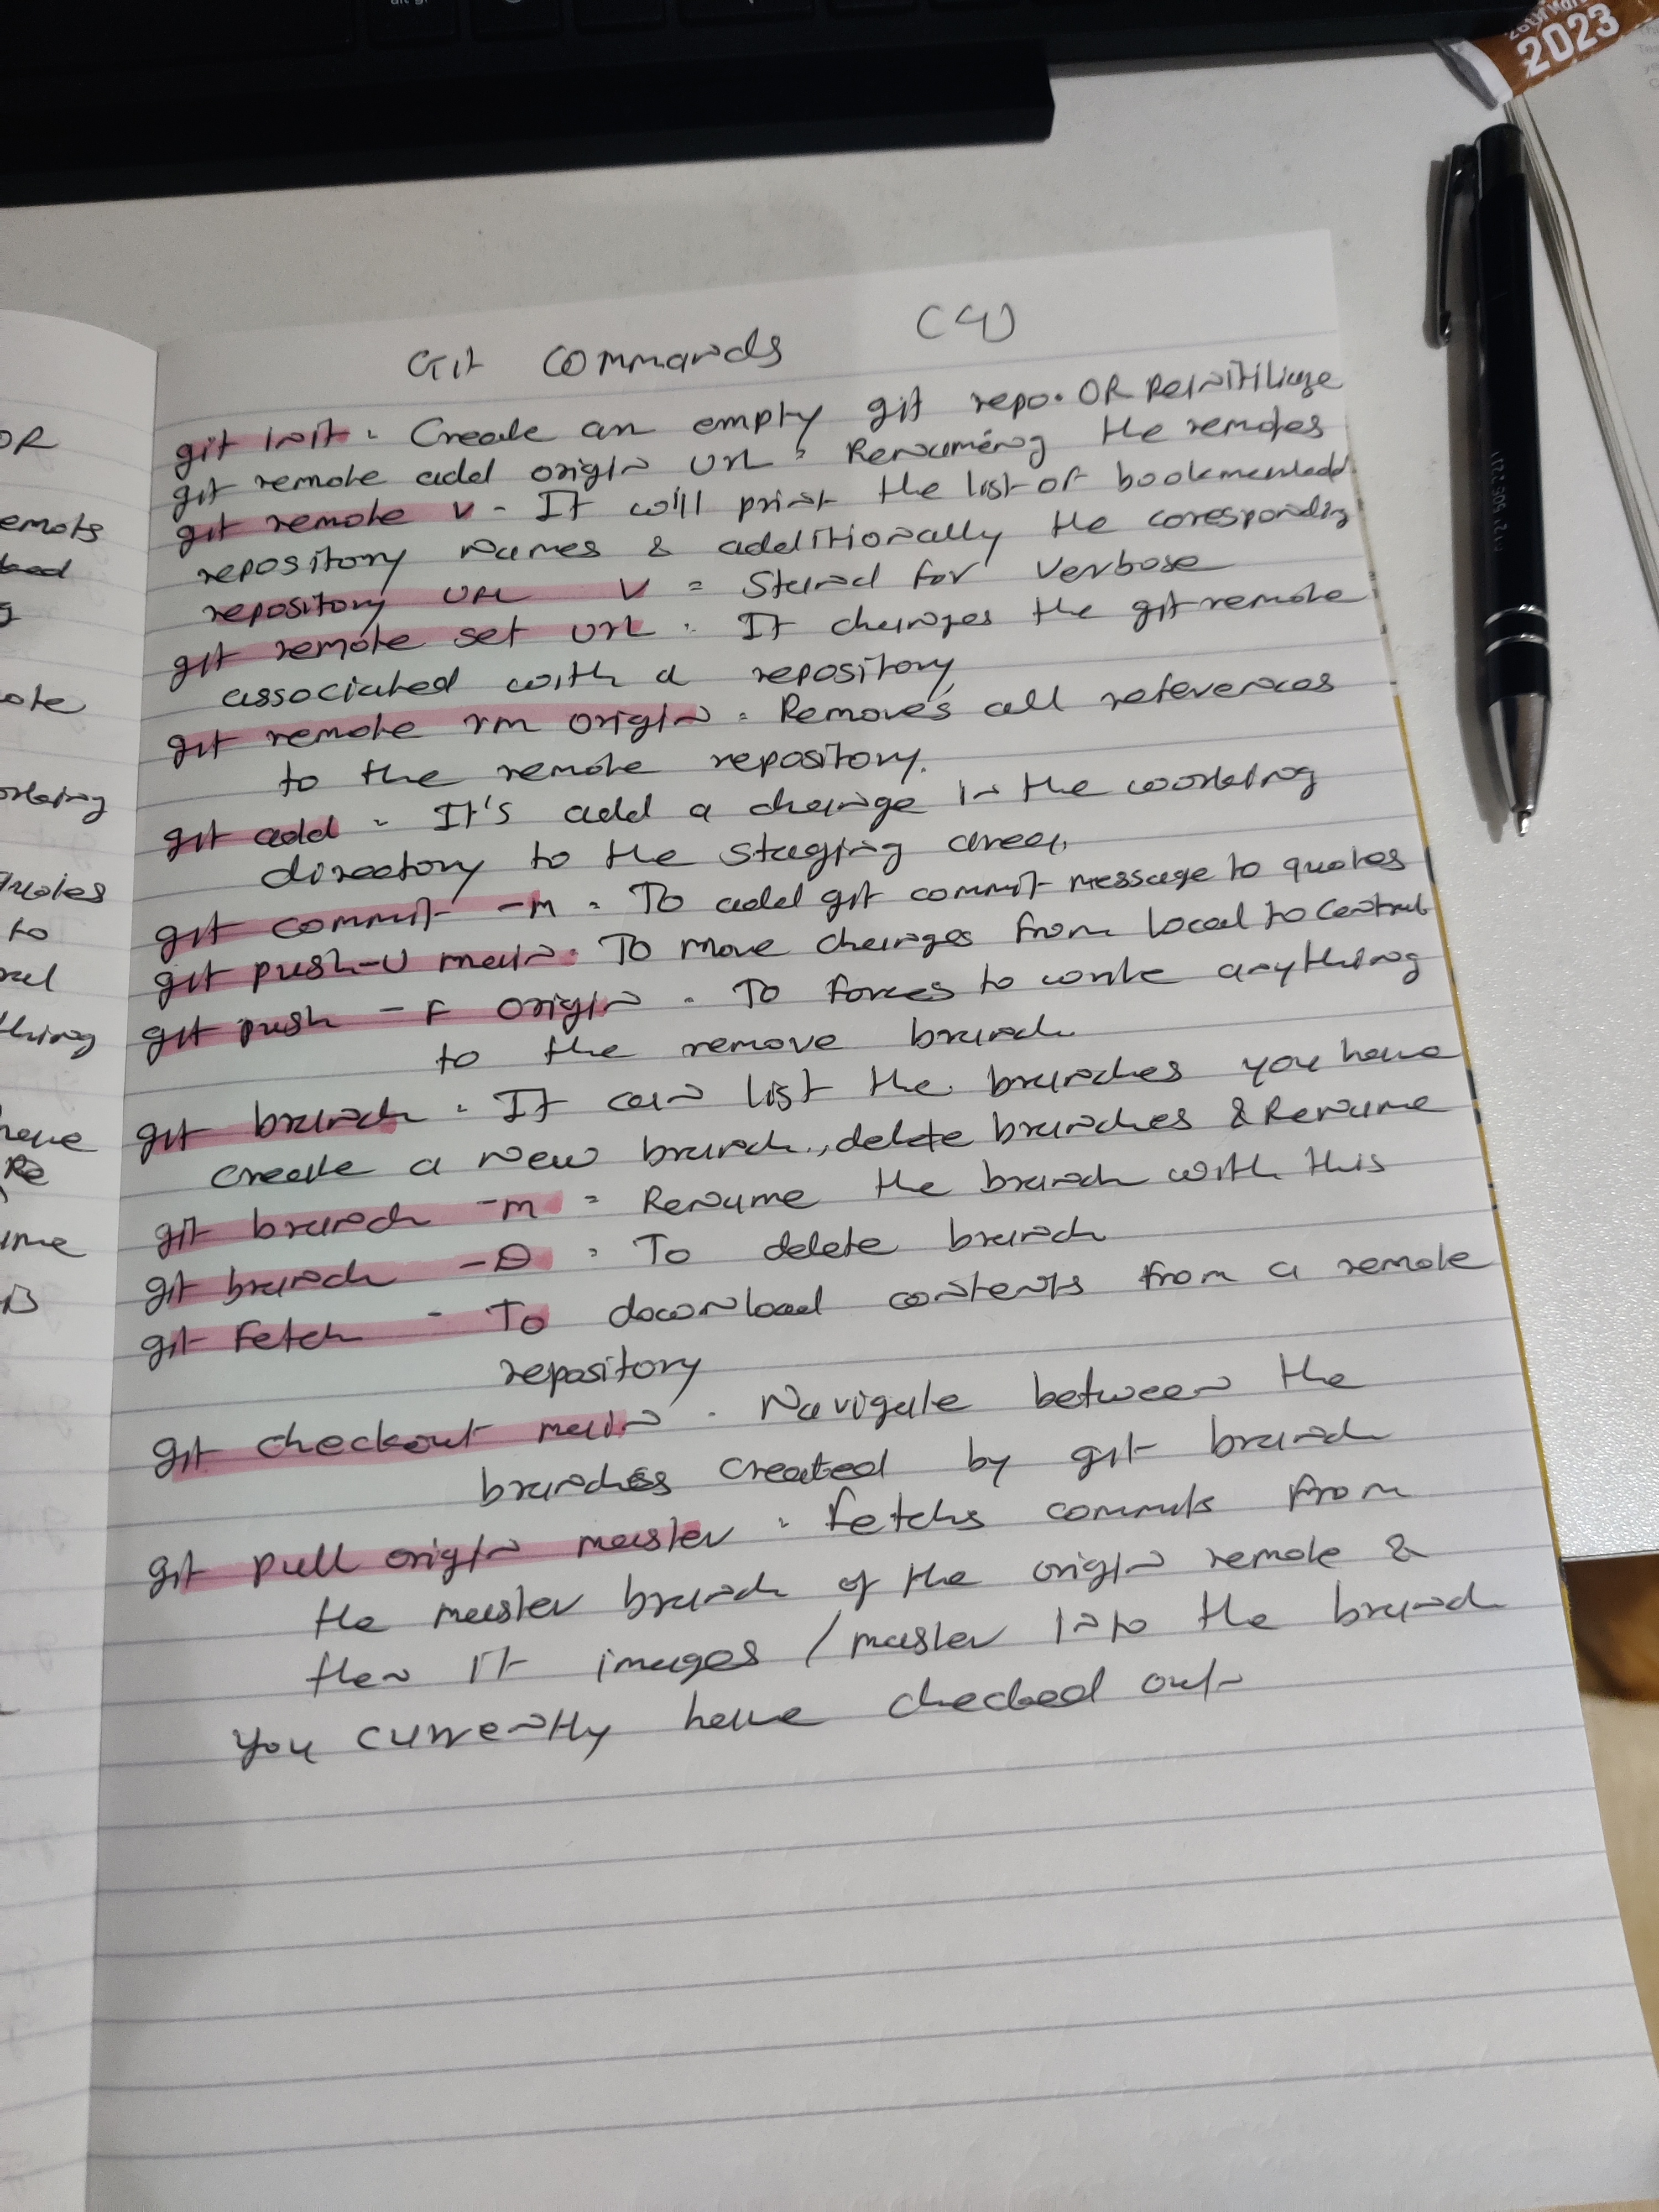 2023
Git Commands (4)
git init : Create an empty git repo. OR Reinitiliuze
git remote add origin url : Renaming the remotes
git remote v - It will print the list of bookmended
repository names & additionally the coresponding
repository url v = Stand for Verbose
git remote set url : It changes the git remote
associated with a repository
git remote rm origin : Removes all references
to the remote repository.
git add : It's add a change in the working
directory to the staging area.
git commit -m : To add git commit message to quotes
git push-U main : To move changes from local to central
git push - F origin : To forces to write anything
to the remove branch
git branch : It can list the branches you have
create a new branch., delete branches & Rename
git branch -m = Rename the branch with this
git branch -D : To delete branch
git Fetch - To download contents from a remote
repository
git checkout main . Navigate between the
branches created by git branch
git pull origin master : Fetchs commits from
the master branch of the origin remote &
then it images / master into the branch
you currently have checked out
OR
emots
g
ote
orking
quotes
to
ral
thing
have
Re
ame